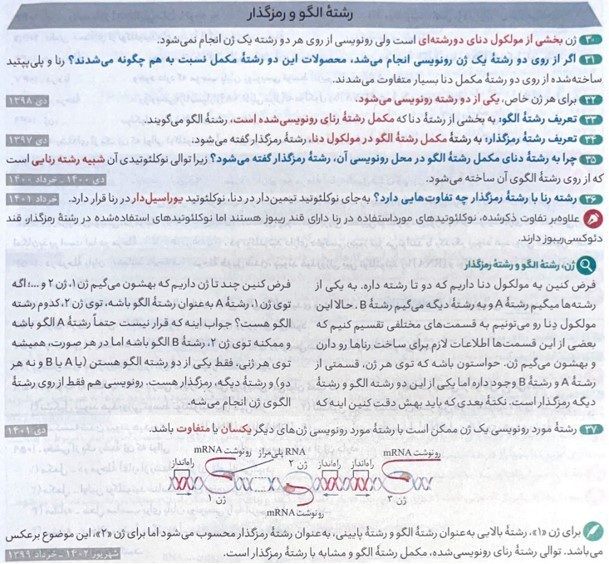 رشتهٔ الگو و رمزگذار
۳۰ ژن بخشی از مولکول دنای دورشته‌ای است ولی رونویسی از روی هر دو رشته یک ژن انجام نمی‌شود.
۳۱ اگر از روی دو رشتهٔ یک ژن رونویسی انجام می‌شد، محصولات این دو رشتهٔ مکمل نسبت به هم چگونه می‌شدند؟ رنا و پلی‌پپتید
ساخته‌شده از روی دو رشتهٔ مکمل دنا بسیار متفاوت می‌شدند.
دی ۱۳۹۸
۳۲ برای هر ژن خاص، یکی از دو رشته رونویسی می‌شود.
۳۳ تعریف رشتهٔ الگو: به بخشی از رشتهٔ دنا که مکمل رشتهٔ رنای رونویسی شده است، رشتهٔ الگو می‌گویند.
۳۴ تعریف رشتهٔ رمزگذار: به رشتهٔ مکمل رشتهٔ الگو در مولکول دنا، رشتهٔ رمزگذار گفته می‌شود.
دی ۱۳۹۷
۳۵ چرا به رشتهٔ دنای مکمل رشتهٔ الگو در محل رونویسی آن، رشتهٔ رمزگذار گفته می‌شود؟ زیرا توالی نوکلئوتیدی آن شبیه رشته رنایی است
که از روی رشتهٔ الگوی آن ساخته می‌شود.
دی ۱۴۰۰ ـ خرداد ۱۴۰۰
۳۶ رشته رنا با رشتهٔ رمزگذار چه تفاوت‌هایی دارد؟ به‌جای نوکلئوتید تیمین‌دار در دنا، نوکلئوتید یوراسیل‌دار در رنا قرار دارد.
خرداد ۱۴۰۱
علاوه‌بر تفاوت ذکرشده، نوکلئوتیدهای مورداستفاده در رنا دارای قند ریبوز هستند اما نوکلئوتیدهای استفاده‌شده در رشتهٔ رمزگذار قند
دئوکسی‌ریبوز دارند.
ژن، رشتهٔ الگو و رشتهٔ رمزگذار
فرض کنین یه مولکول دنا داریم که دو تا رشته داره. به یکی از
رشته‌ها میگیم رشتهٔ A و به رشتهٔ دیگه می‌گیم رشتهٔ B. حالا این
مولکول دنا رو می‌تونیم به قسمت‌های مختلفی تقسیم کنیم که
بعضی از این قسمت‌ها اطلاعات لازم برای ساخت رناها رو دارن
و بهشون می‌گیم ژن. حواستون باشه که توی هر ژن، قسمتی از
رشتهٔ A و رشتهٔ B وجود داره اما یکی از این دو رشته الگو و رشتهٔ
دیگه رمزگذار است. نکتهٔ بعدی که باید بهش دقت کنین اینه که
فرض کنین چند تا ژن داریم که بهشون می‌گیم ژن ۱، ژن ۲ و ...؛ اگه
توی ژن ۱، رشتهٔ A به‌عنوان رشتهٔ الگو باشه، توی ژن ۲، کدوم رشته
الگو هست؟ جواب اینه که قرار نیست حتماً رشتهٔ A الگو باشه
و ممکنه توی ژن ۲، رشتهٔ B الگو باشه اما در هر صورت، همیشه
توی هر ژنی، فقط یکی از دو رشته الگو هستن (یا A یا B و نه هر
دو) و رشتهٔ دیگه، رمزگذار هست. رونویسی هم فقط از روی رشتهٔ
الگوی ژن انجام می‌شه.
۳۷ رشتهٔ مورد رونویسی یک ژن ممکن است با رشتهٔ مورد رونویسی ژن‌های دیگر یکسان یا متفاوت باشد.
دی ۱۴۰۱
رونوشت mRNA
RNA پلی‌مراز
رونوشت mRNA
راه‌انداز
ژن ۲
راه‌انداز
راه‌انداز
ژن ۱
ژن ۳
رونوشت mRNA
برای ژن «۱»، رشتهٔ بالایی به‌عنوان رشتهٔ الگو و رشتهٔ پایینی، به‌عنوان رشتهٔ رمزگذار محسوب می‌شود اما برای ژن «۲»، این موضوع برعکس
می‌باشد. توالی رشتهٔ رنای رونویسی‌شده، مکمل رشتهٔ الگو و مشابه با رشتهٔ رمزگذار است.
شهریور ۱۴۰۲ ـ خرداد ۱۳۹۹